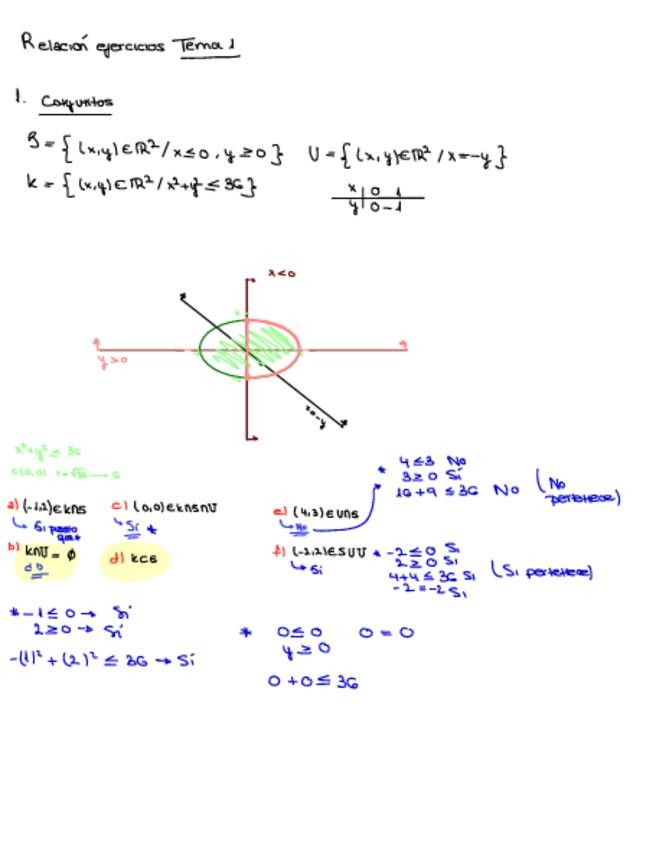 Relación ejercicios Tema 1
1. Conjuntos
S = { (x,y) ∈ ℝ² / x ≤ 0, y ≥ 0 } U = { (x,y) ∈ ℝ² / x = -y }
K = { (x,y) ∈ ℝ² / x² + y² ≤ 36 }
x | 0 1
y | 0 -1
x<0
y>0
x=-y
x²+y² ≤ 36
c(0,0) r=√36 → 6
a) (-1,2) ∈ K∩S c) (0,0) ∈ K∩S∩U e) (4,3) ∈ U∩S
↳ Si puesto que * ↳ Si * ↳ No
4 ≤ 3 No
3 ≥ 0 Sí
16 + 9 ≤ 36 No (No pertenece)
b) K∩U = ∅ d) K⊂S f) (-2,2) ∈ S∪U * -2 ≤ 0 Si
↳ Si 2 ≥ 0 Si
4+4 ≤ 36 Si (Si pertenece)
-2 = -2 Si
* -1 ≤ 0 → Sí
2 ≥ 0 → Sí
-(1)² + (2)² ≤ 36 → Sí
* 0 ≤ 0 0 = 0
y ≥ 0
0 + 0 ≤ 36